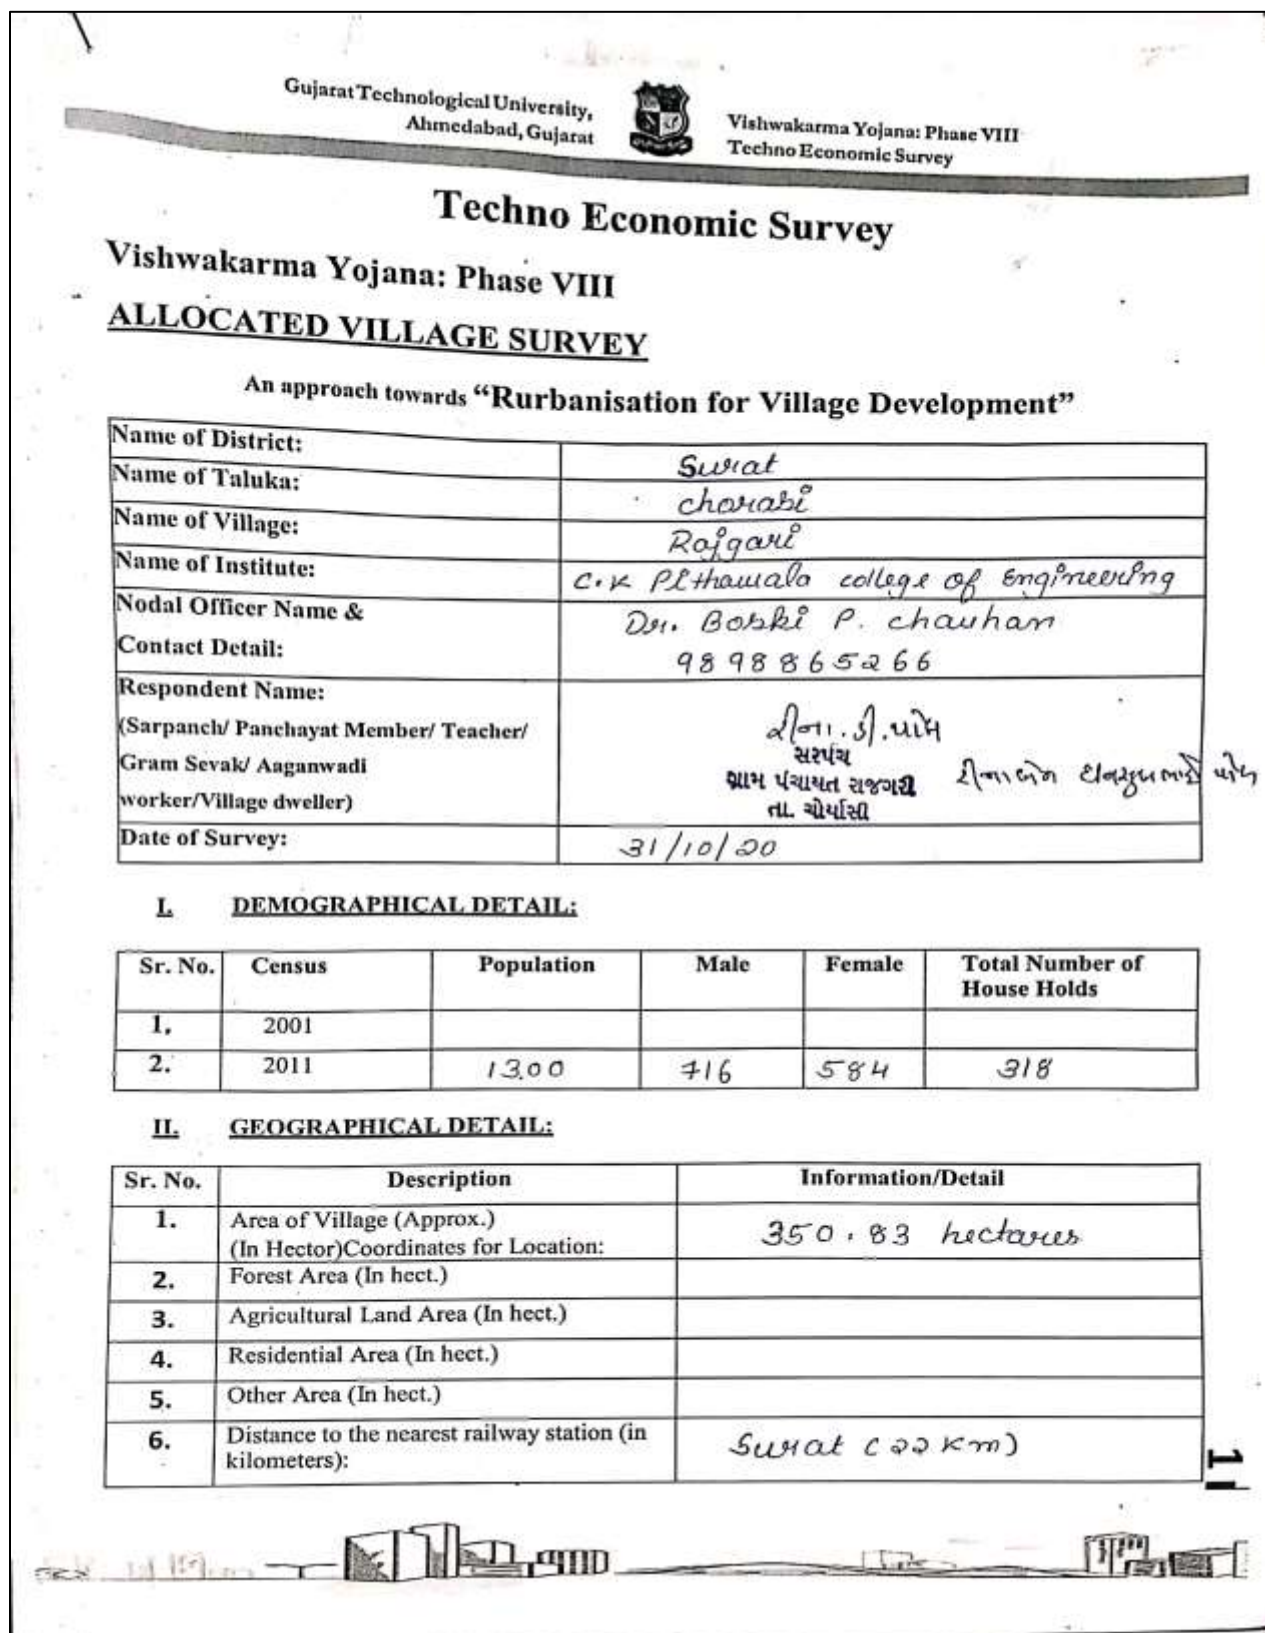 Gujarat Technological University,
Ahmedabad, Gujarat
Vishwakarma Yojana: Phase VIII
Techno Economic Survey
Techno Economic Survey
Vishwakarma Yojana: Phase VIII
ALLOCATED VILLAGE SURVEY
An approach towards “Rurbanisation for Village Development”
Name of District: Surat
Name of Taluka: chorasi
Name of Village: Rajgari
Name of Institute: C.K Pithawala college of Engineering
Nodal Officer Name & Dr. Boski P. chauhan
Contact Detail: 9898865266
Respondent Name:
(Sarpanch/ Panchayat Member/ Teacher/
Gram Sevak/ Aaganwadi
worker/Village dweller)
સરપંચ
ગ્રામ પંચાયત રાજગરી
તા. ચોર્યાસી
Date of Survey: 31/10/20
I. DEMOGRAPHICAL DETAIL:
Sr. No. Census Population Male Female Total Number of House Holds
1, 2001
2. 2011 1300 716 584 318
II. GEOGRAPHICAL DETAIL:
Sr. No. Description Information/Detail
1. Area of Village (Approx.)
(In Hector)Coordinates for Location: 350.83 hectares
2. Forest Area (In hect.)
3. Agricultural Land Area (In hect.)
4. Residential Area (In hect.)
5. Other Area (In hect.)
6. Distance to the nearest railway station (in
kilometers): Surat (22 Km)
1